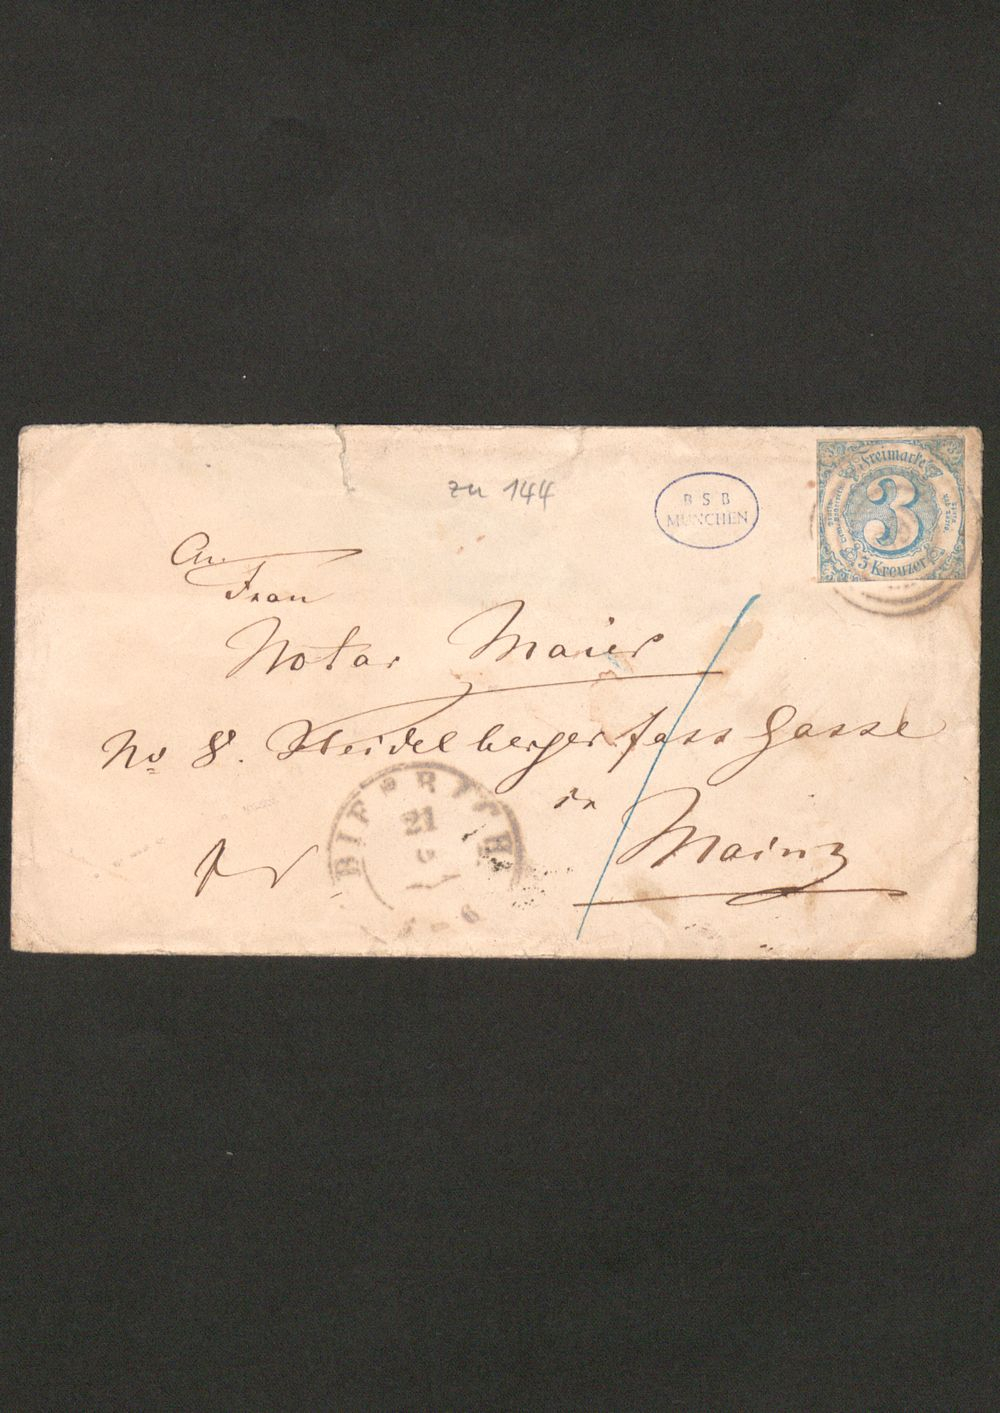 zu 144
B S B
MÜNCHEN
Freimarke
3
3 Kreuzer
An
Frau
Notar Maier
No 8. Heidelbergerfass Gasse
in
Mainz
fr
BIEBRICH
21
6